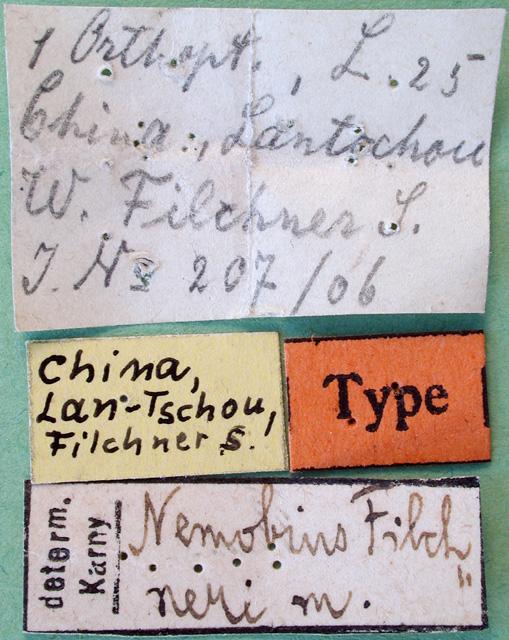 1 Orthopt., L. 25
China., Lantschou
W. Filchner S.
J. No 207/06
China,
Lan-Tschou,
Filchner S.
Type
determ.
Karny
Nemobius Filch
neri m.